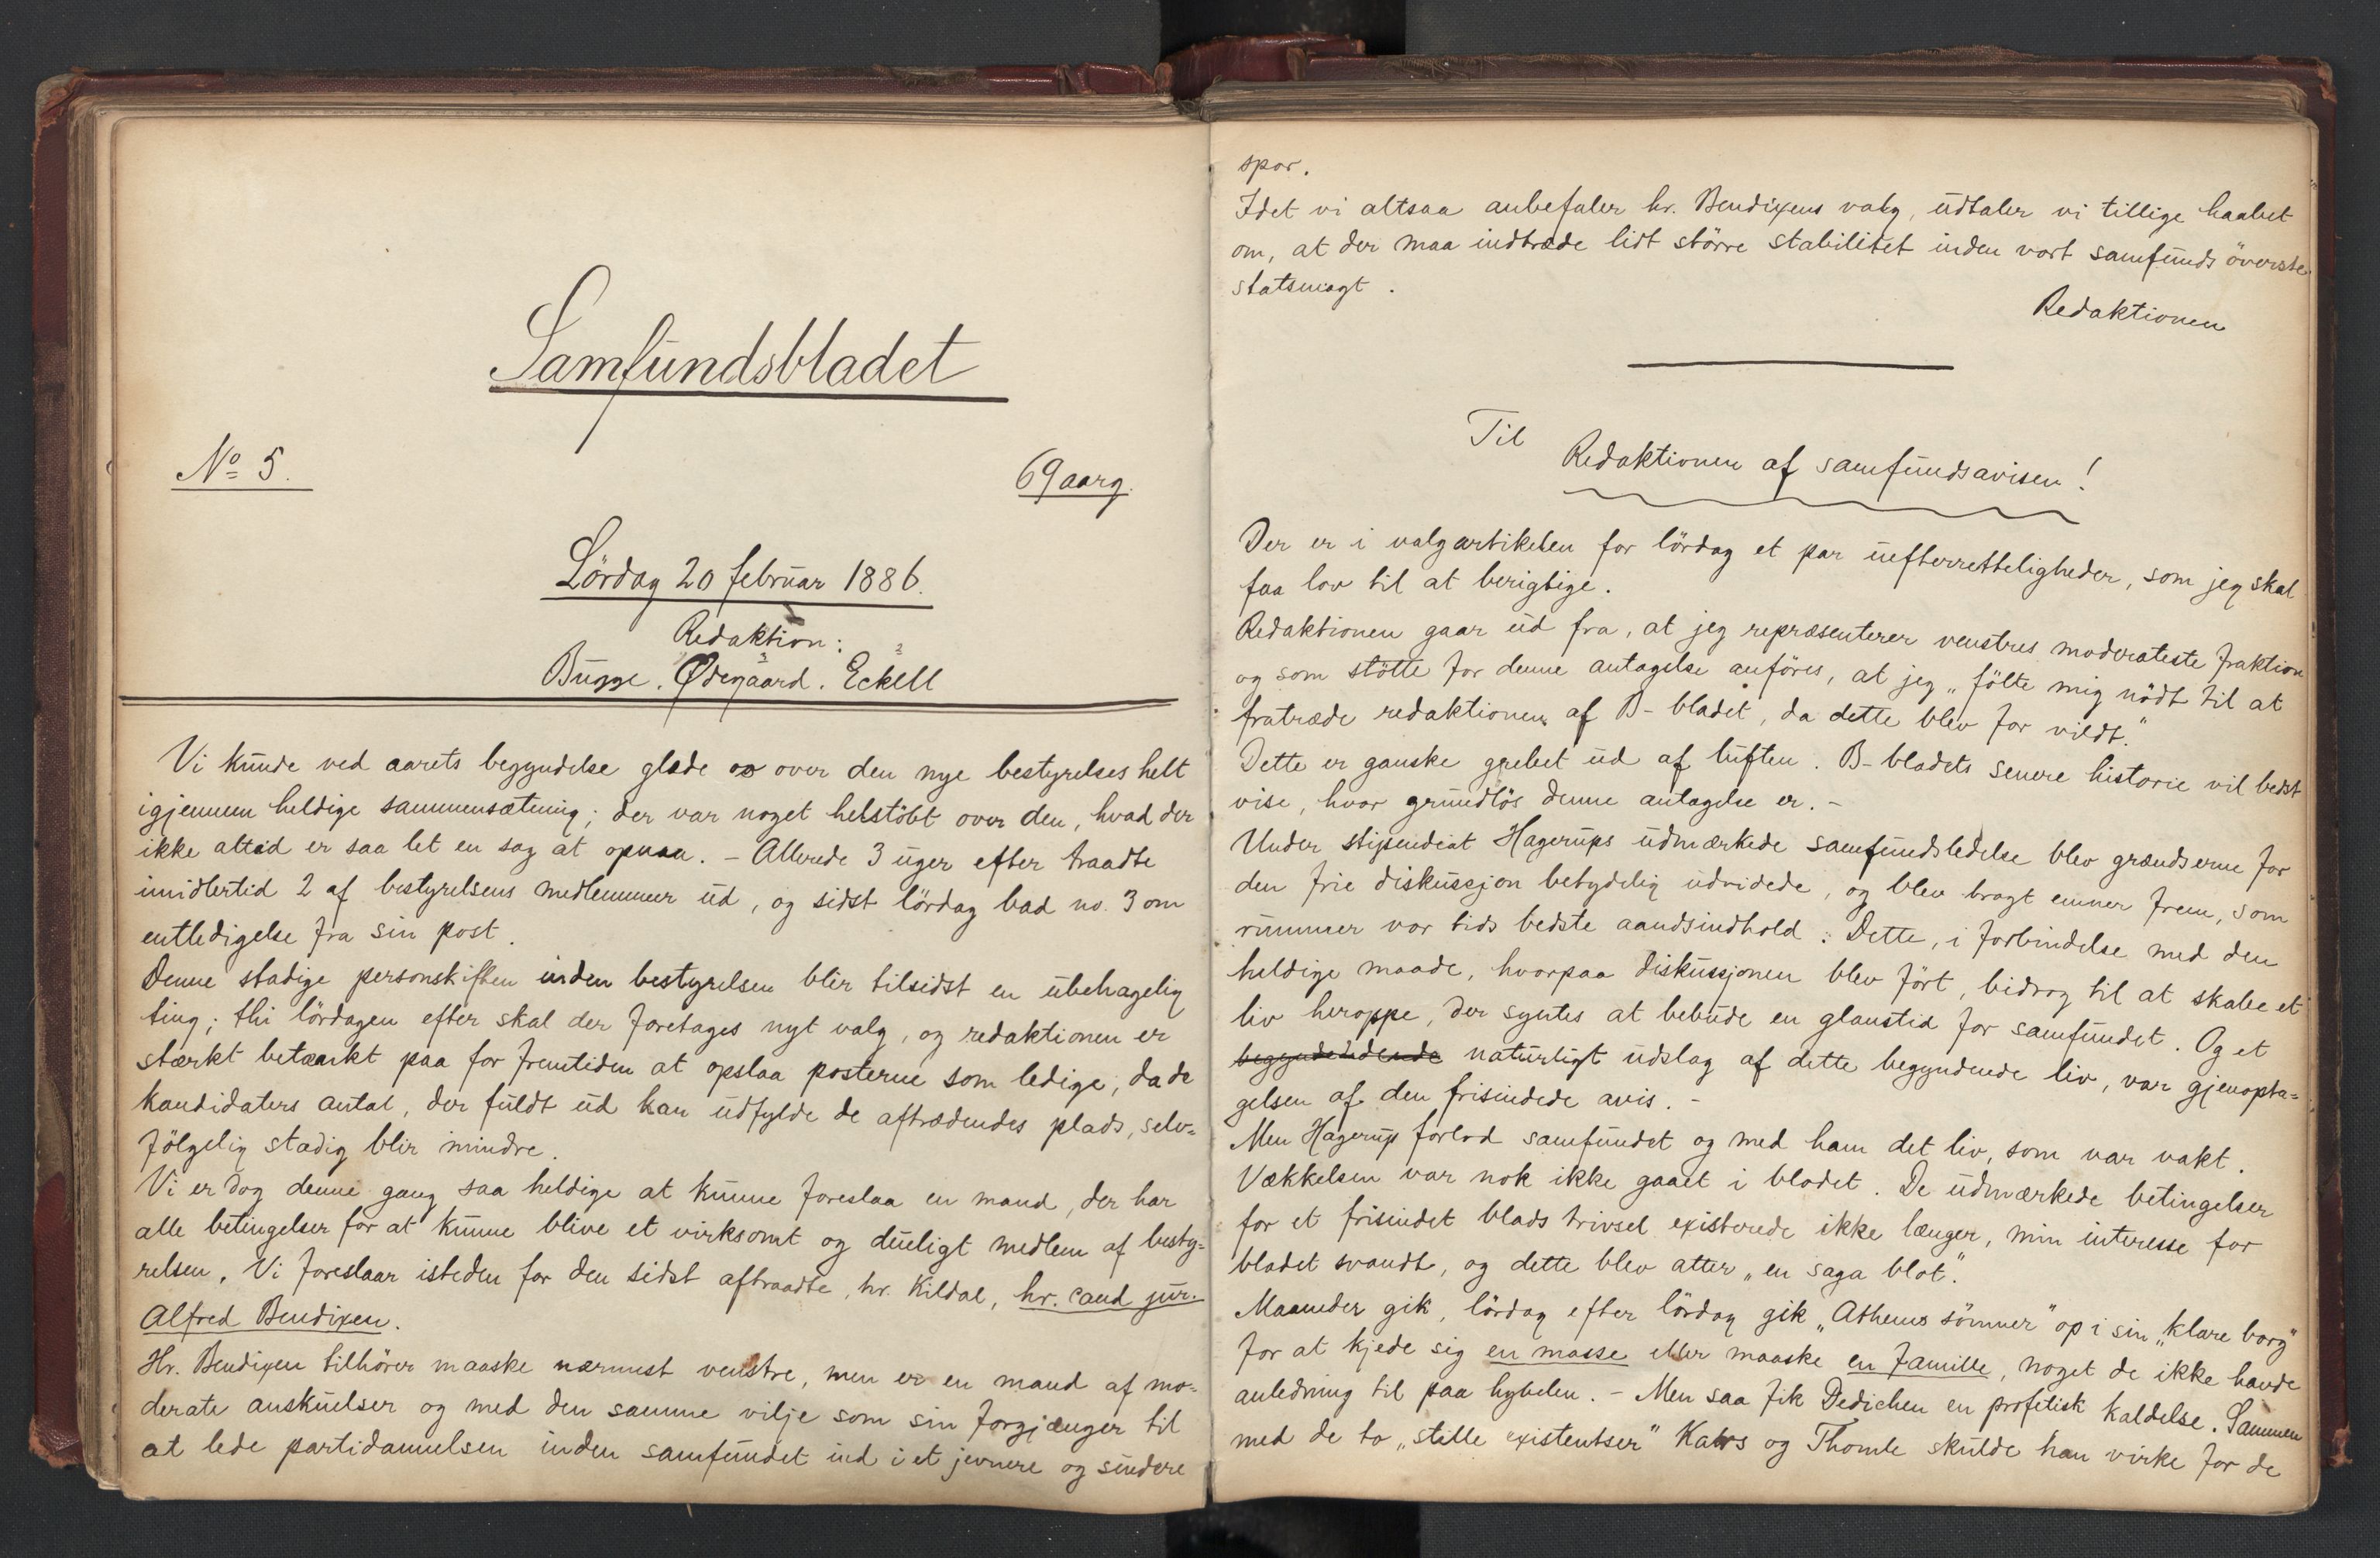 Samfundsbladet
No 5.
69 aarg.
Lördag 20 februar 1886.
Redaktion:
Bugge. Ødegaard. Eckell
Vi kunde ved aarets begyndelse glæde os over den nye bestyrelses helt
igjennem heldige sammensætning; der var noget helstöbt over den, hvad der
ikke altid er saa let en sag at opnaa. – Allerede 3 uger efter traadte
imidlertid 2 af bestyrelsens medlemmer ud, og sidst lördag bad no. 3 om
entledigelse fra sin post.
Denne stadige personskiften inden bestyrelsen blir tilsidst en ubehagelig
ting; thi lördagen efter skal der foretages nyt valg, og redaktionen er
stærkt betænkt paa for fremtiden at opslaa posterne som ledige, da de
kandidaters antal, der fuldt ud kan udfylde de aftrædendes plads, selv=
fölgelig stadig blir mindre.
Vi er dog denne gang saa heldige at kunne foreslaa en mand, der har
alle betingelser for at kunne blive et virksomt og dueligt medlem af besty=
relsen. Vi foreslaar isteden for den sidst aftraadte, hr. Kildal, hr. cand jur.
Alfred Bendixen.
Hr. Bendixen tilhörer maaske nærmest venstre, men er en mand af mo=
derate anskuelser og med den samme vilje som sin forgjænger til
at lede partidannelsen inden samfundet ind i et jevnere og sundere
spor.
Idet vi altsaa anbefaler hr. Bendixens valg, udtaler vi tillige haabet
om, at der maa indtræde lidt större stabilitet inden vort samfunds överste
statsmagt.
Redaktionen
Til
Redaktionen af samfundsavisen!
Der er i valgartikelen for lördag et par uefterretteligheder, som jeg skal
faa lov til at berigtige.
Redaktionen gaar ud fra, at jeg repræsenterer venstres moderateste fraktion
og som stötte for denne antagelse anföres, at jeg „fölte mig nödt til at
fratræde redaktionen af B-bladet, da dette blev for vildt."
Dette er ganske grebet ud af luften. B-bladets senere historie vil bedst
vise, hvor grundlös denne antagelse er. –
Under stipendiat Hagerups udmærkede samfundsledelse blev grændserne for
den frie diskussjon betydelig udvidede, og blev bragt emner frem, som
rummer vor tids bedste aandsindhold. Dette, i forbindelse med den
heldige maade, hvorpaa diskussjonen blev fört, bidrog til at skabe et
liv heroppe, der syntes at bebude en glanstid for samfundet. Og et
naturligt udslag af dette begyndende liv, var gjenopta=
gelsen af den frisindede avis. –
Men Hagerup forlod samfundet og med ham det liv, som var vakt.
Vækkelsen var nok ikke gaaet i blodet. De udmærkede betingelser
for et frisindet blads trivsel existerede ikke længer, min interesse for
bladet svandt, og dette blev atter „en saga blot".
Maaneder gik, lördag efter lördag gik „Athens sönner" op i sin „klare borg"
for at kjede sig en masse eller maaske en famille, noget de ikke havde
anledning til paa hybelen. – Men saa fik Dedichen en profetisk kaldelse. Sammen
med de to „stille existentser" Kahrs og Thomle skulde han virke for de